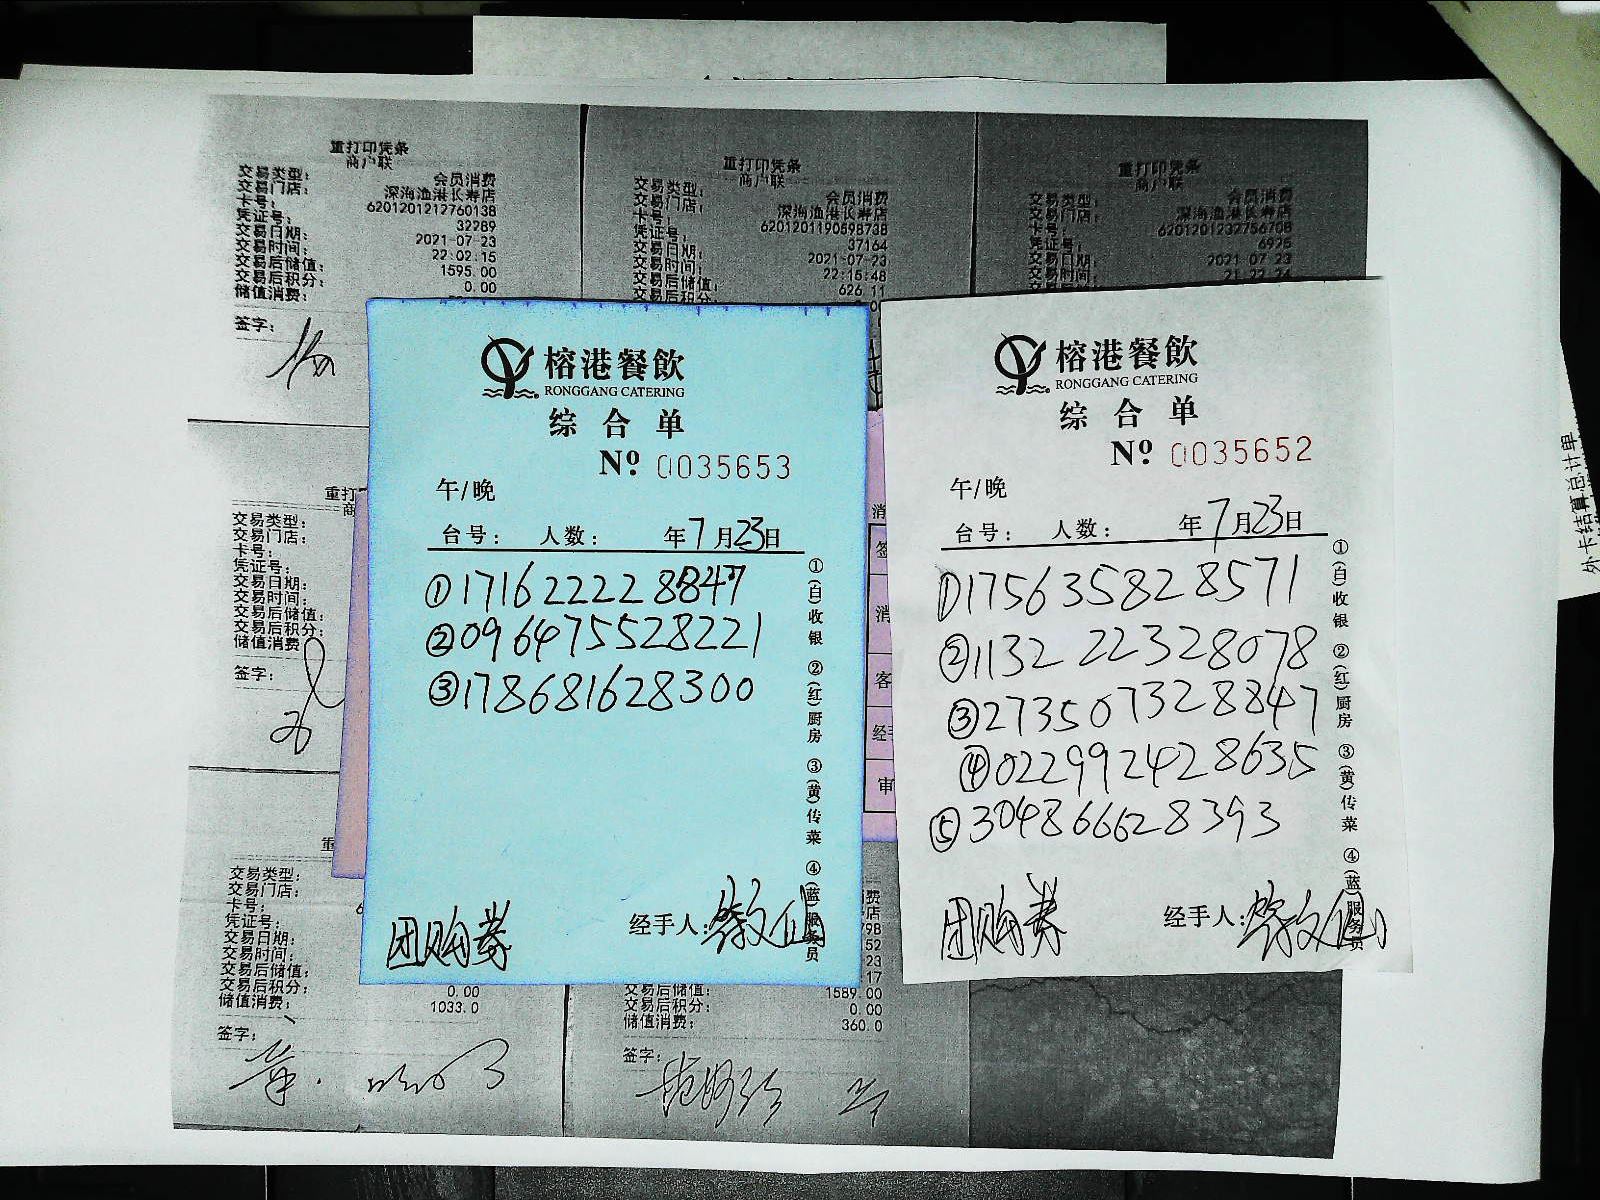 重打印凭条
商户联
交易类型: 会员消费
交易门店: 深海渔港长寿店
卡号: 6201201212760138
凭证号: 32289
交易日期: 2021-07-23
交易时间: 22:02:15
交易后储值: 1595.00
交易后积分: 0.00
储值消费:
签字:
重打印凭条
商户联
交易类型: 会员消费
交易门店: 深海渔港长寿店
卡号: 6201201190598738
凭证号: 37164
交易日期: 2021-07-23
交易时间: 22:15:48
交易后储值: 626.11
交易后积分:
重打印凭条
商户联
交易类型: 会员消费
交易门店: 深海渔港长寿店
卡号: 6201201232756708
凭证号: 6925
交易日期: 2021-07-23
交易时间: 21:22:24
榕港餐飲
RONGGANG CATERING
综合单
Nº 0035653
午/晚
台号: 人数: 年7月23日
①1716222228847
②0964755528221
③178681628300
团购券
经手人:
①(白)收银 ②(红)厨房 ③(黄)传菜 ④(蓝)服务员
榕港餐飲
RONGGANG CATERING
综合单
Nº 0035652
午/晚
台号: 人数: 年7月23日
①175635828571
②1132 22328078
③273507328847
④022992428635
⑤304866628393
团购券
经手人:
①(白)收银 ②(红)厨房 ③(黄)传菜 ④(蓝)服务员
重打
商
交易类型:
交易门店:
卡号:
凭证号:
交易日期:
交易时间:
交易后储值:
交易后积分:
储值消费
签字:
消
签
消
客
经手
审
重
交易类型:
交易门店:
卡号:
凭证号:
交易日期:
交易时间:
交易后储值:
交易后积分: 0.00
储值消费: 1033.0
签字:
费
店
798
52
23
17
交易后储值: 1589.00
交易后积分: 0.00
储值消费: 360.0
签字:
外卡结算总计单